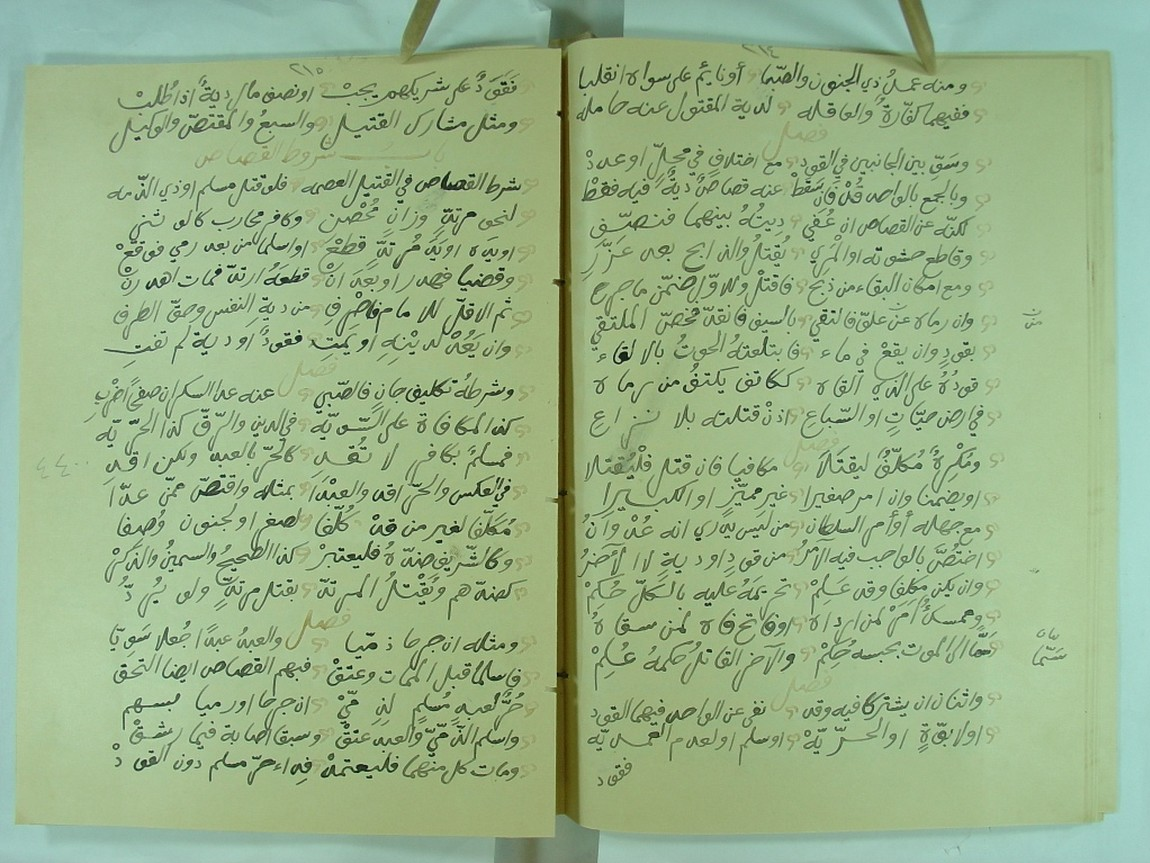 ٢١٤
ومنه عمل ذي الجنون والصبا أو نائم على سواه انقلبا
ففيهما كفارة والعاقله لدية المقتول عنه حامله
فصل
وسوّ بين الجانبين في القود مع اختلاف في محل او عدد
وبالجمع بالواحد قد فان سقط عنه قصاص دية فيه فقط
لكنه عن القصاص ان عفي ديته بينهما فنصف
وقاطع حشوته او المري يقتل والذابح بعد عزر
ومع امكان البقاء من ذبح فاقتل وللاول ضمن ما جرح
وان رماه عن علو فالتقي بالسيف فانقد خص الملتقي
بقود وان يقع في ماء فابتلعته الحوت بالالقاء
قوده على الذي القاه ككاتف يكتف من رماه
في ارض حيات او السباع اذن قتلته بلا نزاع
فصل
ومكره مكلفا ليقتلا مكافيا فان قتل فليقتلا
او يضمنا وان امر صغيرا غير مميز او الكبيرا
مع جهله أو أم السلطان من ليس يدري انه عدوان
اختص بالواجب فيه الآمر من قود او دية لا الآخر
وان يكن مكلفا وقد علم تحريمه عليه بالكل حكم
وممسك أمر لمن ارداه او فاتح فاه لمن سقاه
سما الى الموت بحبسه حكم والآخر القاتل حكمه علم
فصل
واثنان ان يشتركا فيه وقد نفي عن الواحد فيهما القود
او لابوة او الحرية او سلم او لعدم العمدية
فقود
سما
٢١٥
فقود على شريكهم يجب او نصف مال دية اذا طلب
ومثل مشارك القتيل والسبع والمقتص والوكيل
باب شروط القصاص
شرط القصاص في القتيل العصمه فلو قتل مسلم او ذي الذمه
لنحو مرتد وزان محصن وكافر محارب كالوثني
او يده او يد مرتد قطع او اسلما من بعد رمي فوقع
وقضيا فهدر او بعد ان قطعه ارتد فمات اهدرن
ثم الاقل للامام فاصرف من دية النفس وحق الطرف
وان يعد لدينه او يمت فقود او دية لم تفت
فصل
وشرطه تكليف جان فالصبي عنه عدا السكران صفحا اضرب
كذا المكافاة على السوية في الدين والرق كذا الحرية
فمسلم بكافر لا تقد كالحر بالعبد ولكن اقد
في العكس والحر اقد والعبدا بمثله واقتص ممن عدا
مكلفا لغير من قد كلفا لصغر او لجنون وصفا
وكالشريف ضده فليعتبر كذا الصحيح والسمين والذكر
كضدهم ويقتل المرتد بقتل مرتد ولو يرد
فصل
ومثله ان جرحا ذميا والعبد عبدا جعلا سويا
فاسلما قبل الممات وعتق فبهم القصاص ايضا التحق
حر لعبد مسلم لذمي ان جرحا او رميا بسهم
واسلم الذمي والعبد عتق وسبق اصابة فيما رشق
ومات كل منهما فليعتمد فداء حر مسلم دون القود
٤٤٠٠